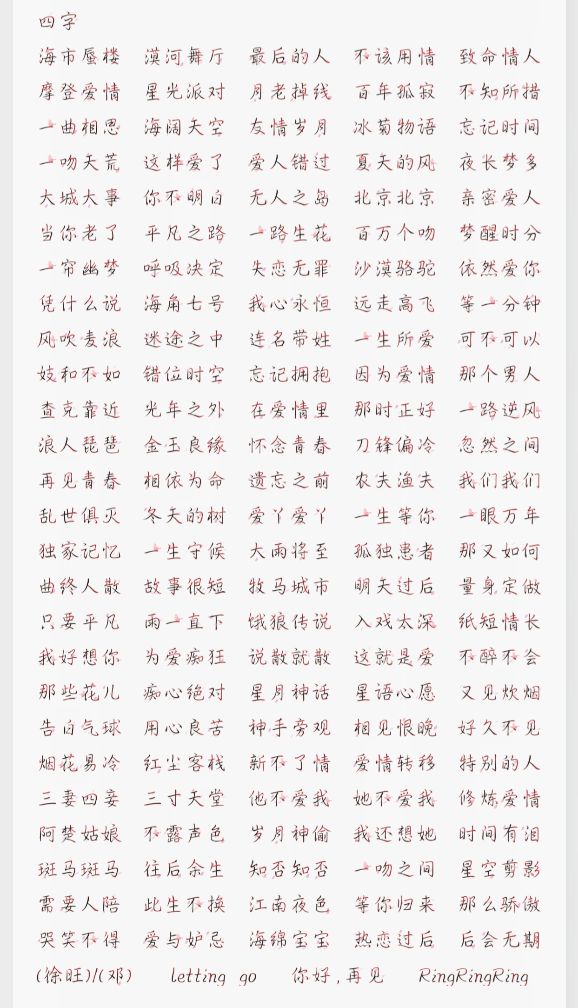 四字
海市蜃楼 漠河舞厅 最后的人 不该用情 致命情人
摩登爱情 星光派对 月老掉线 百年孤寂 不知所措
一曲相思 海阔天空 友情岁月 冰菊物语 忘记时间
一吻天荒 这样爱了 爱人错过 夏天的风 夜长梦多
大城大事 你不明白 无人之岛 北京北京 亲密爱人
当你老了 平凡之路 一路生花 百万个吻 梦醒时分
一帘幽梦 呼吸决定 失恋无罪 沙漠骆驼 依然爱你
凭什么说 海角七号 我心永恒 远走高飞 等一分钟
风吹麦浪 迷途之中 连名带姓 一生所爱 可不可以
妓和不如 错位时空 忘记拥抱 因为爱情 那个男人
查克靠近 光年之外 在爱情里 那时正好 一路逆风
浪人琵琶 金玉良缘 怀念青春 刀锋偏冷 忽然之间
再见青春 相依为命 遗忘之前 农夫渔夫 我们我们
乱世俱灭 冬天的树 爱丫爱丫 一生等你 一眼万年
独家记忆 一生守候 大雨将至 孤独患者 那又如何
曲终人散 故事很短 牧马城市 明天过后 量身定做
只要平凡 雨一直下 饿狼传说 入戏太深 纸短情长
我好想你 为爱痴狂 说散就散 这就是爱 不醉不会
那些花儿 痴心绝对 星月神话 星语心愿 又见炊烟
告白气球 用心良苦 神手旁观 相见恨晚 好久不见
烟花易冷 红尘客栈 新不了情 爱情转移 特别的人
三妻四妾 三寸天堂 他不爱我 她不爱我 修炼爱情
阿楚姑娘 不露声色 岁月神偷 我还想她 时间有泪
斑马斑马 往后余生 知否知否 一吻之间 星空剪影
需要人陪 此生不换 江南夜色 等你归来 那么骄傲
哭笑不得 爱与妒忌 海绵宝宝 热恋过后 后会无期
(徐旺)/(邓) letting go 你好,再见 RingRingRing